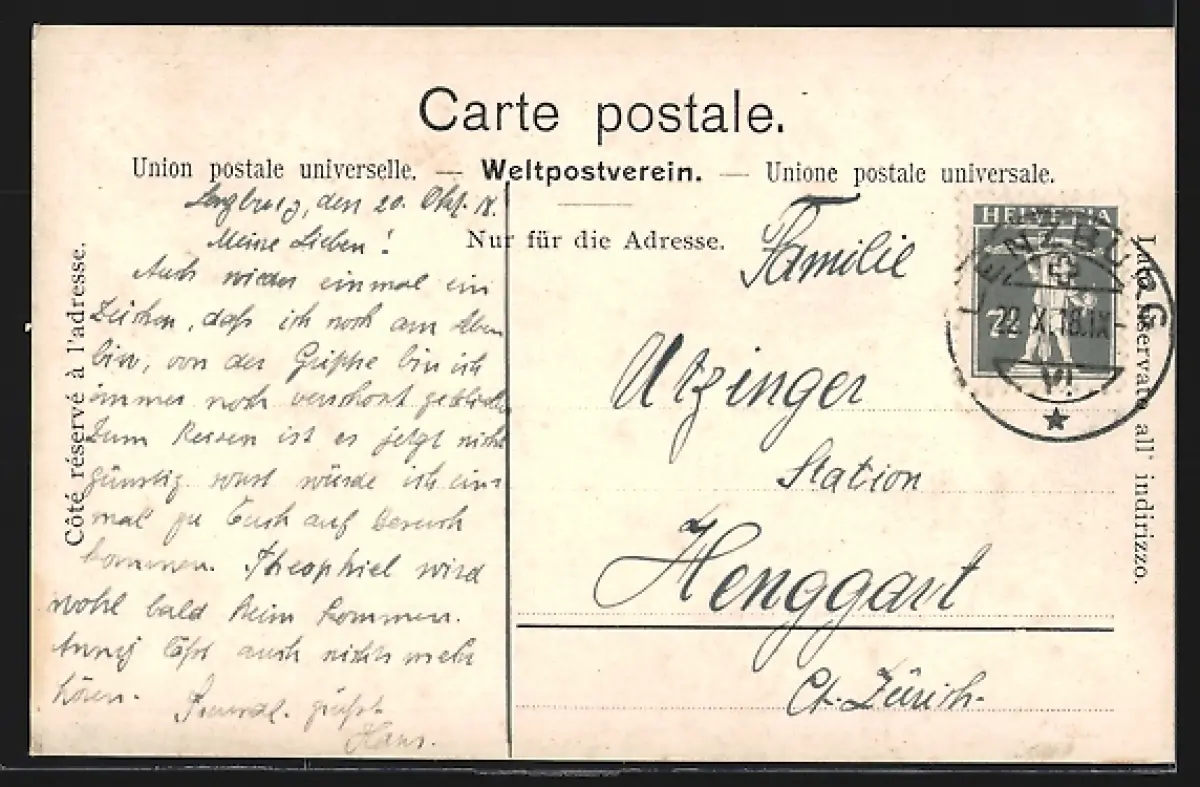 Carte postale.
Union postale universelle. — Weltpostverein. — Unione postale universale.
Nur für die Adresse.
Côté réservé à l'adresse.
Lato riservato all' indirizzo.
Lenzburg, den 20. Okt. 18.
Meine Lieben!
Auch wieder einmal ein
Zeichen, daß ich noch am Leben
bin, von der Grippe bin ich
immer noch verschont geblieben
Zum Reisen ist es jetzt nicht
günstig sonst würde ich ein-
mal zu Euch auf Besuch
kommen. Theophiel wird
wohl bald heim kommen.
Anny läßt auch nichts mehr
hören.
Freundl. grüßt
Hans.
Familie
Utzinger
Station
Henggart
Ct. Zürich.
HELVETIA
7½
LENZBURG
22.X.18.IX